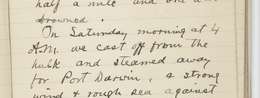 half a mile and one was
drowned.
On Saturday morning at 4
A.M. we cast off from the
hulk and steamed away
for Port Darwin, a strong
wind & rough sea against